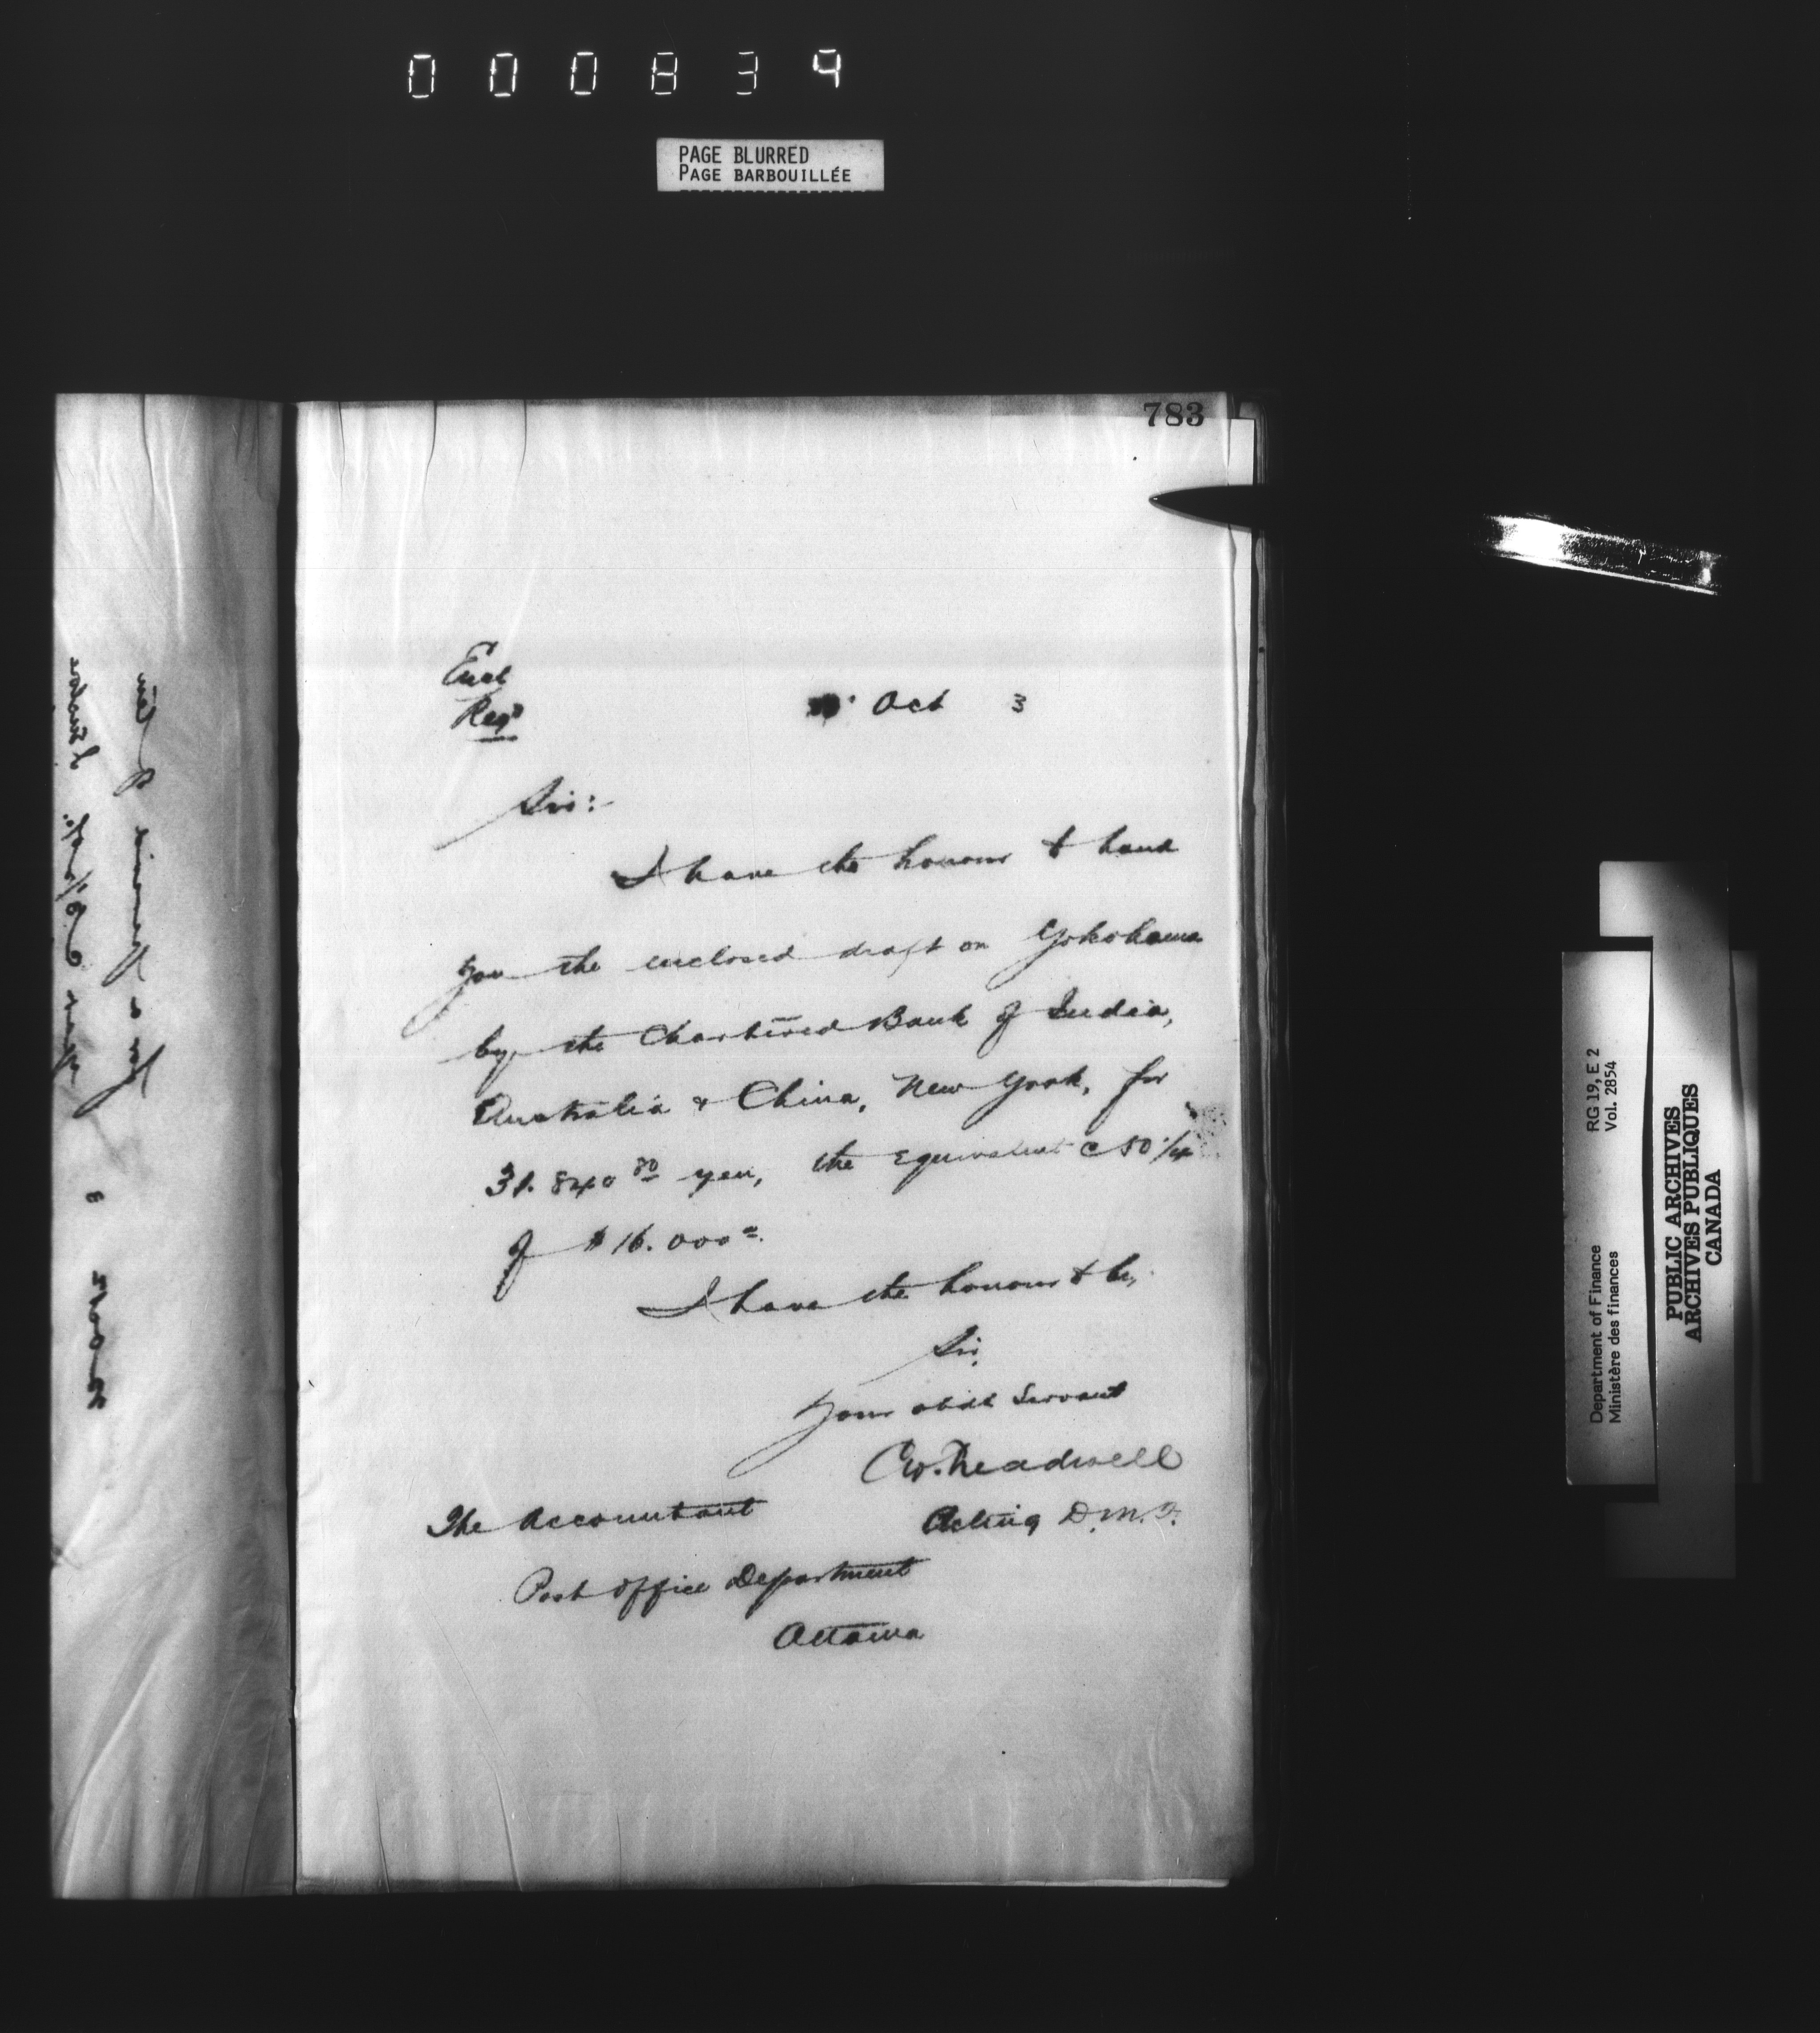 000834
PAGE BLURRED
PAGE BARBOUILLÉE
783
Encl
Regd
Oct 3
Sir:
I have the honour to hand
you the enclosed draft on Yokohama
by the Chartered Bank of India,
Australia & China, New York, for
31.840 80 yen, the equivalent @ 50 1/4
of $16.000 =.
I have the honour to be,
Sir,
Your obdt Servant
C.W. Treadwell
Acting D.M.F.
The Accountant
Post Office Department
Ottawa
RG 19, E 2
Vol. 2854
Department of Finance
Ministère des finances
PUBLIC ARCHIVES
ARCHIVES PUBLIQUES
CANADA